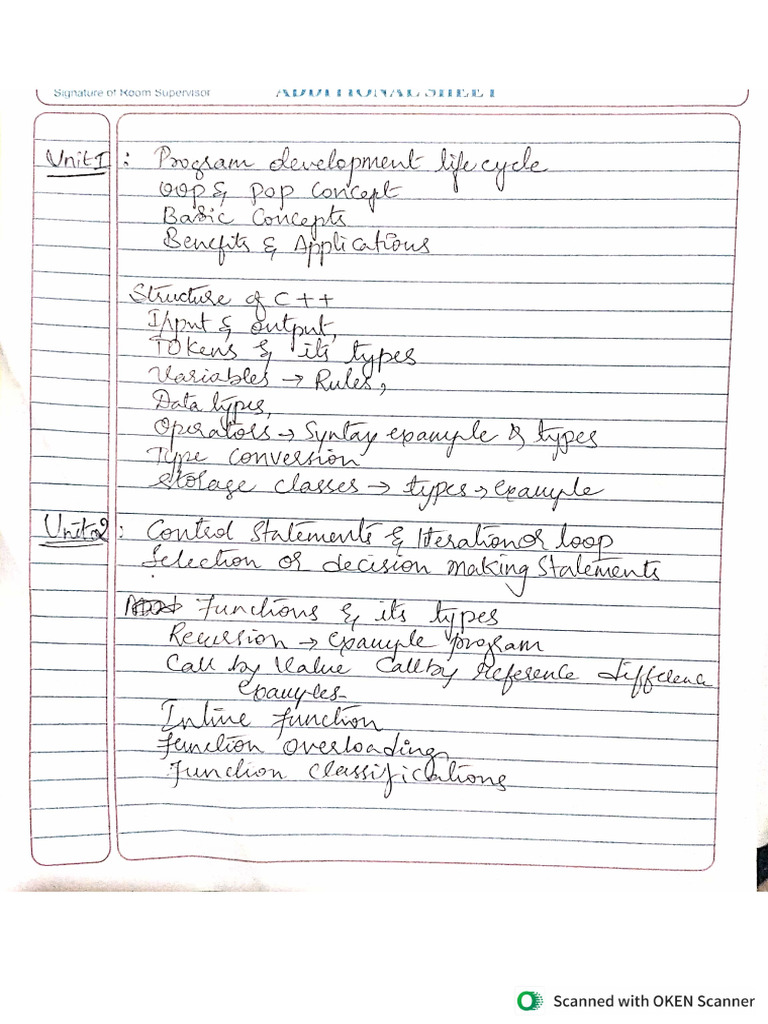 Signature of Room Supervisor ADDITIONAL SHEET
Unit I : Program development life cycle
OOP & POP Concept
Basic Concepts
Benefits & Applications
Structure of C++
Input & output,
Tokens & its types
Variables → Rules,
Data types,
Operators → Syntax example & types
Type conversion
Storage classes → types → example
Unit 02 : Control statements & Iteration or loop
Selection or decision making statements
Functions & its types
Recursion → example program
Call by Value Call by Reference difference
Examples
Inline function
Function overloading
Function classifications
Scanned with OKEN Scanner